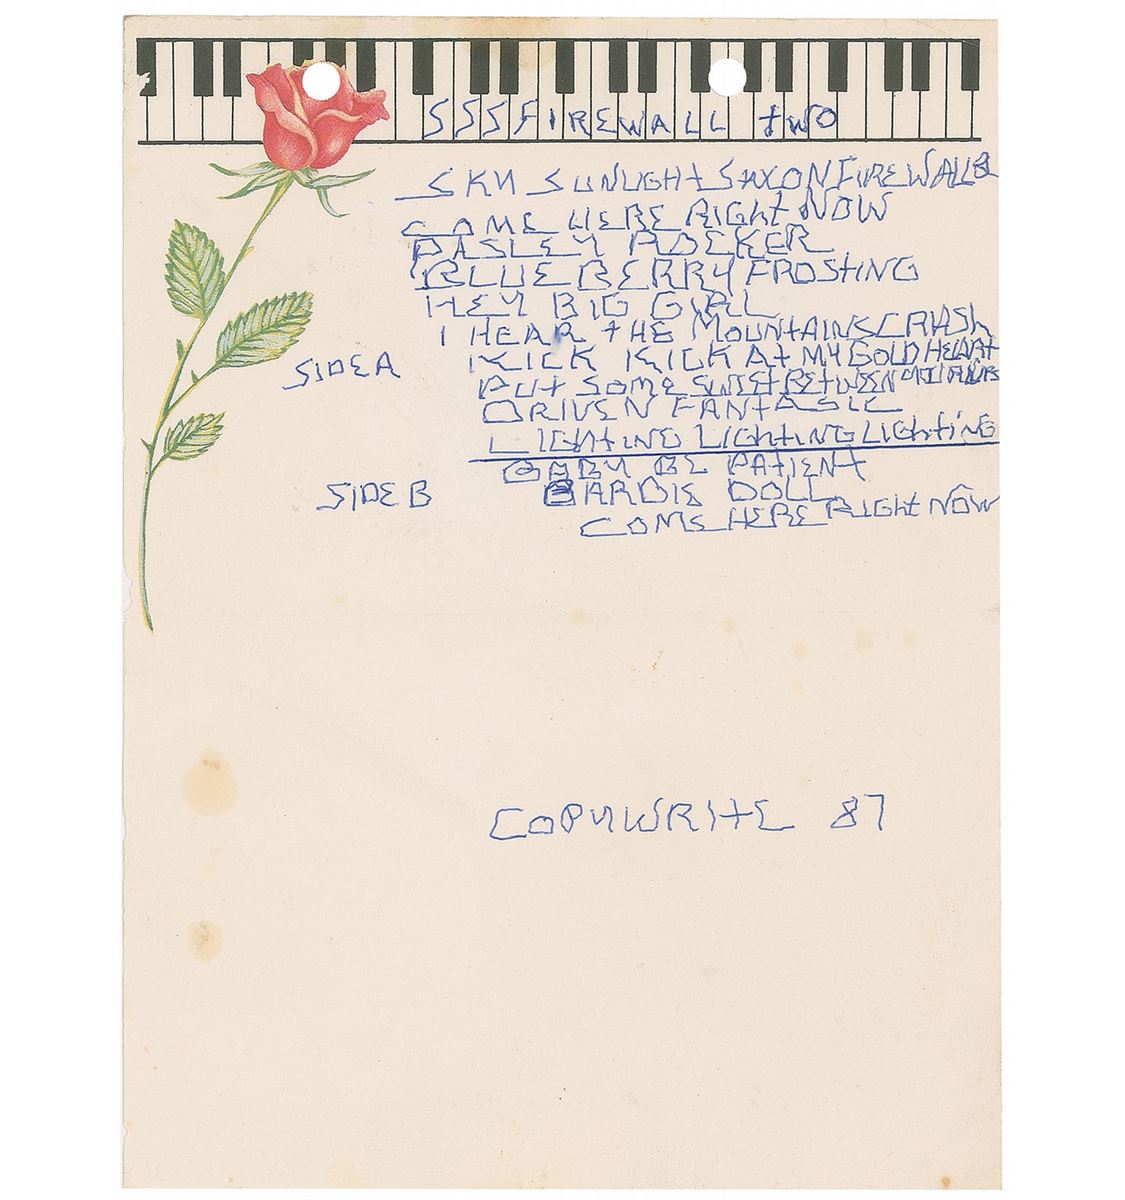 SSSFIREWALL two
SKY SUNLIGHT SAXON FIREWALL
COME HERE RIGHT NOW
PASLEY ROCKER
BLUE BERRY FROSTING
HEY BIG GIRL
I HEAR tHE MOUNTAINS CRASH
KICK KICK At MY GOLD HEART
SIDE A
PUt SOME SWEET BETWEEN
DRIVEN FANtASIC
LIGHTING LIGHTING LIGHTING
BABY BE PATIENT
SIDE B
BARBIE DOLL
COME HERE RIGHT NOW
COPYWRITE 87